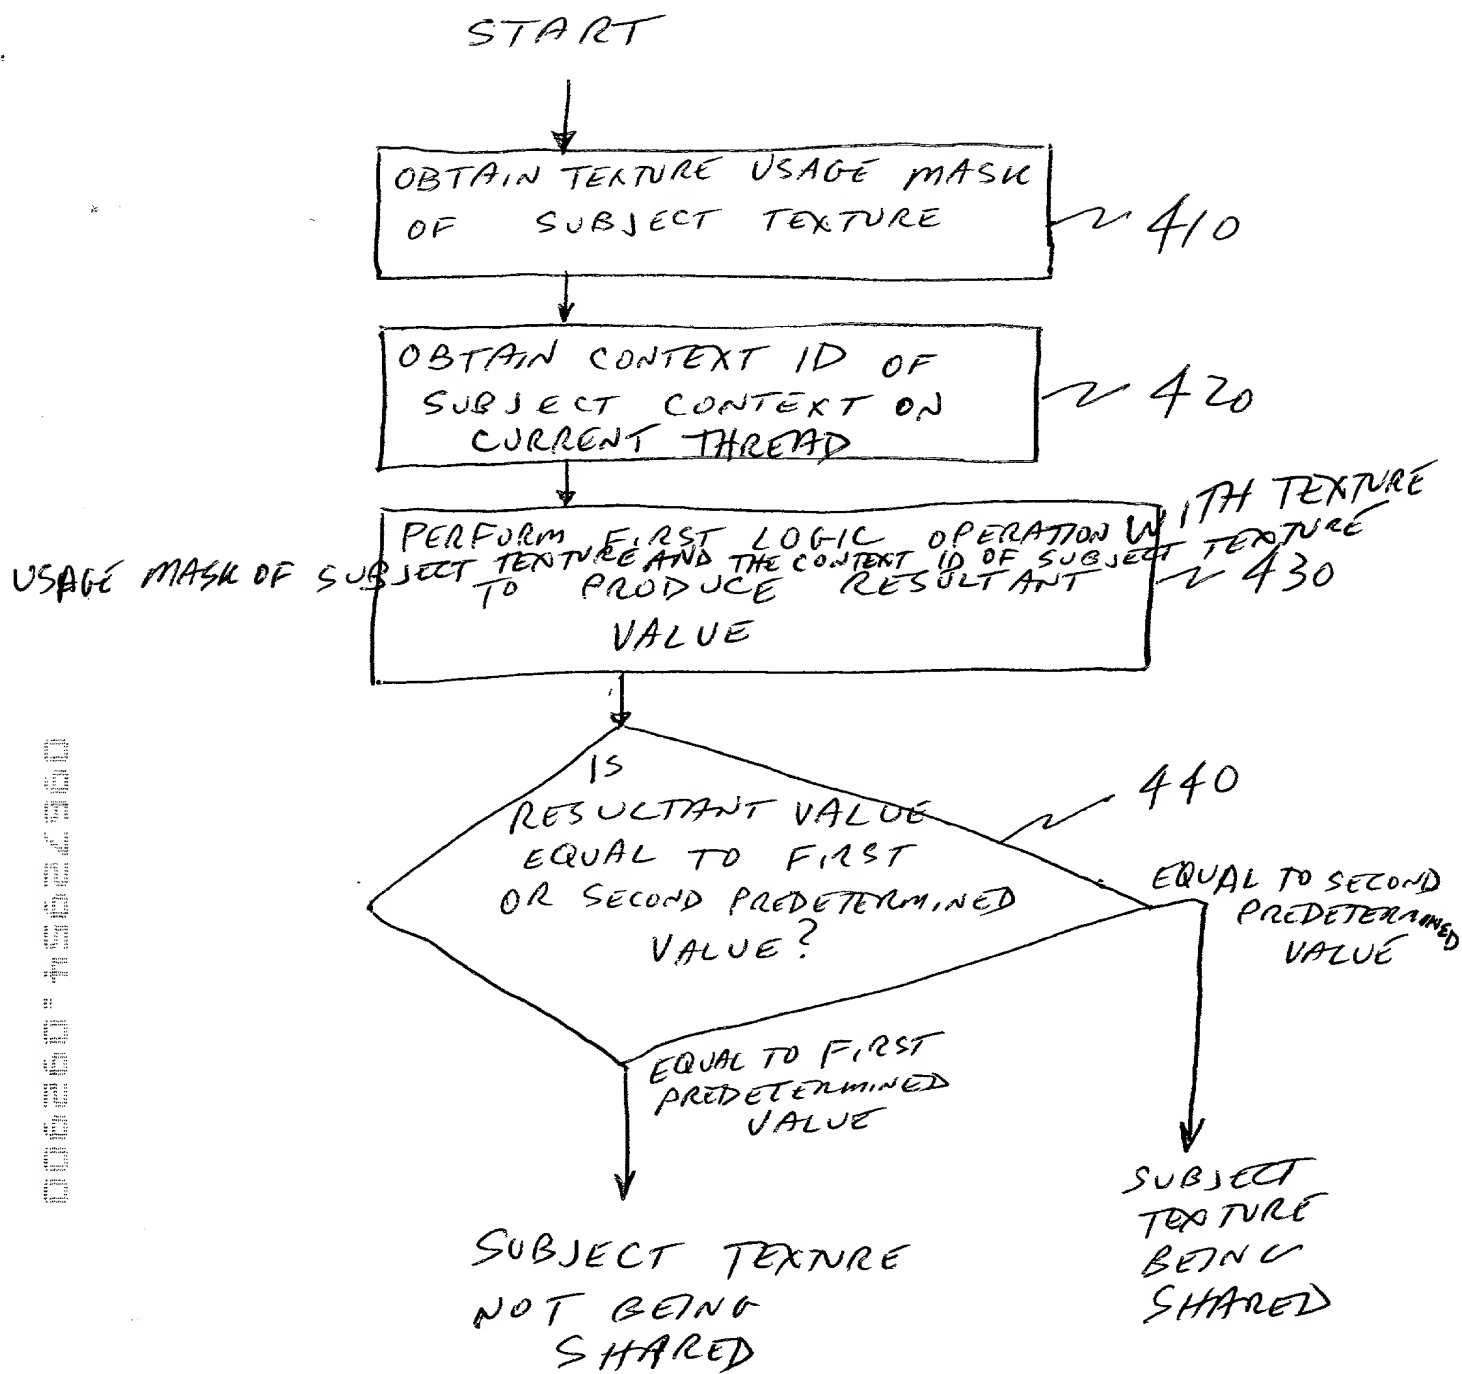 START
OBTAIN TEXTURE USAGE MASK
OF SUBJECT TEXTURE
410
OBTAIN CONTEXT ID OF
SUBJECT CONTEXT ON
CURRENT THREAD
420
PERFORM FIRST LOGIC OPERATION WITH TEXTURE
USAGE MASK OF SUBJECT TEXTURE AND THE CONTEXT ID OF SUBJECT TEXTURE
TO PRODUCE RESULTANT
VALUE
430
IS
RESULTANT VALUE
EQUAL TO FIRST
OR SECOND PREDETERMINED
VALUE?
440
EQUAL TO SECOND
PREDETERMINED
VALUE
EQUAL TO FIRST
PREDETERMINED
VALUE
SUBJECT TEXTURE
NOT BEING
SHARED
SUBJECT
TEXTURE
BEING
SHARED
09672954.092900